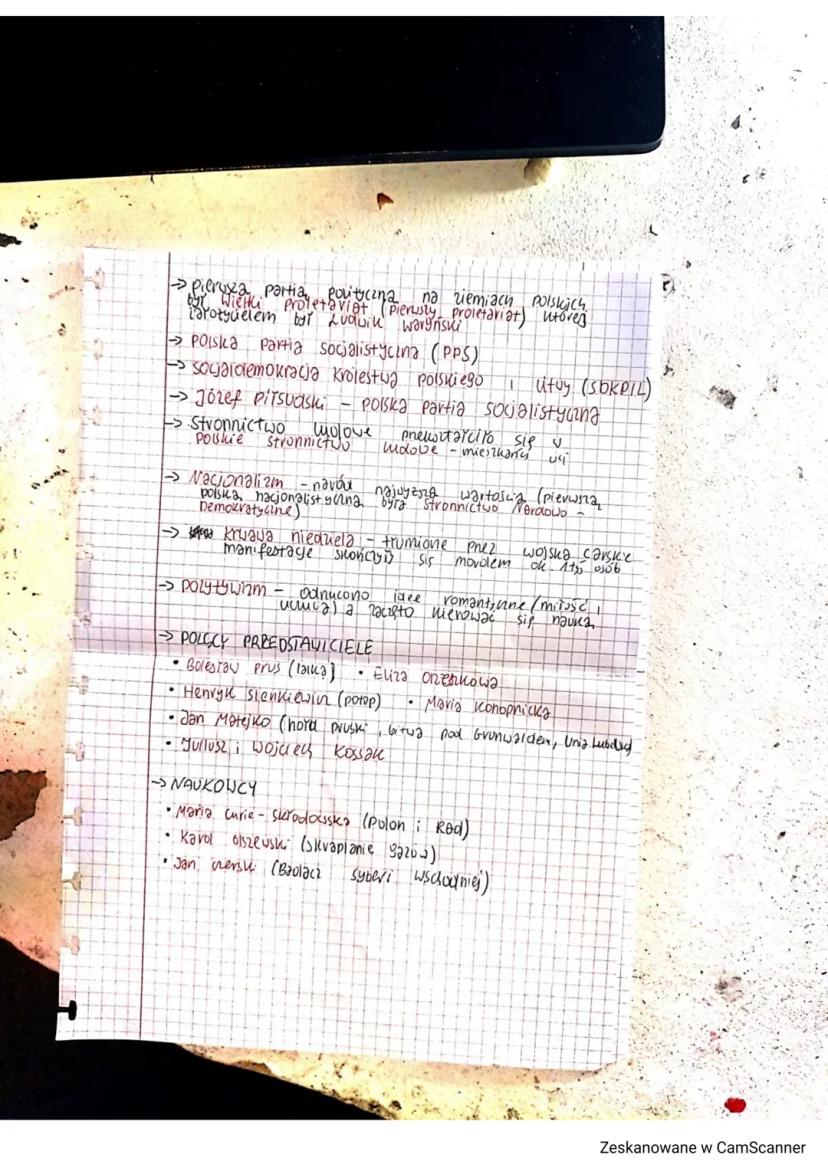 → pierwsza partią polityczną na ziemiach polskich
był Wielki proletariat (pierwszy proletariat) której
założycielem był Ludwik Waryński
→ Polska Partia Socjalistyczna (PPS)
→ Socjaldemokracja Królestwa polskiego i Litwy (SDKPIL)
→ Józef Piłsudski – polska partia socjalistyczna
→ Stronnictwo ludowe przekształciło się w
polskie stronnictwo ludowe – mieszkańcy wsi
→ Nacjonalizm – naród najwyższą wartością (pierwszą
polską nacjonalistyczną była Stronnictwo Narodowo –
Demokratyczne)
→ krwawa niedziela – tłumione przez wojska carskie
manifestacje skończyły się mordem ok. osób
→ pozytywizm – odrzucono idee romantyczne (miłość i
uczucia) a zaczęto kierować się nauką
→ POLSCY PRZEDSTAWICIELE
• Bolesław prus (lalka) • Eliza orzeszkowa
• Henryk Sienkiewicz (potop) • Maria Konopnicka
• Jan Matejko (hołd pruski, bitwa pod Grunwaldem, Unia Lubelska)
• Juliusz i Wojciech Kossak
→ NAUKOWCY
• Maria curie – skłodowska (polon i Rad)
• Karol olszewski (skraplanie gazów)
• Jan czerski (Badacz syberi wschodniej)
Zeskanowane w CamScanner